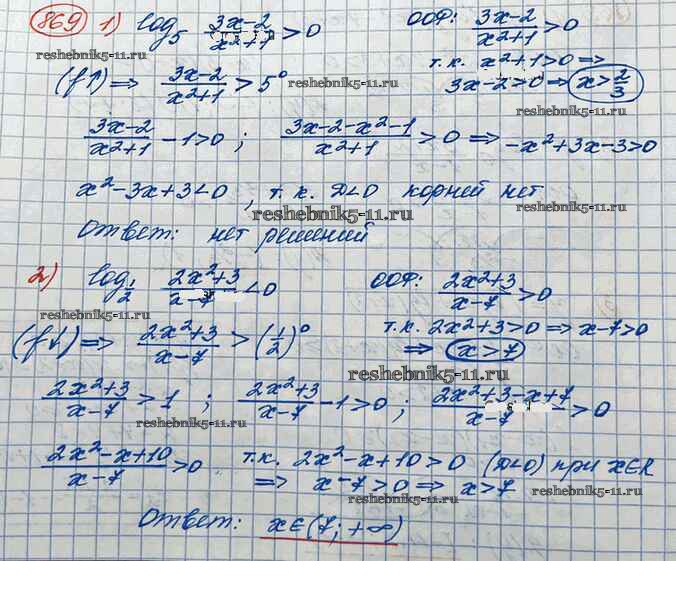 869 1) log₅ (3x-2)/(x²+1) > 0 ООФ: (3x-2)/(x²+1) > 0
reshebnik5-11.ru
т.к. x²+1>0 ⇒
(f↑) ⇒ (3x-2)/(x²+1) > 5⁰ 3x-2>0 ⇒ x>2/3
reshebnik5-11.ru
reshebnik5-11.ru
(3x-2)/(x²+1) - 1 > 0 ; (3x-2-x²-1)/(x²+1) > 0 ⇒ -x²+3x-3>0
reshebnik5-11.ru
x²-3x+3<0, т.к. D<0 корней нет
reshebnik5-11.ru
reshebnik5-11.ru
Ответ: нет решений
2) log₁/₂ (2x²+3)/(x-7) < 0 ООФ: (2x²+3)/(x-7) > 0
reshebnik5-11.ru
т.к. 2x²+3>0 ⇒ x-7>0
(f↓) ⇒ (2x²+3)/(x-7) > (1/2)⁰ ⇒ x>7
reshebnik5-11.ru
(2x²+3)/(x-7) > 1 ; (2x²+3)/(x-7) - 1 > 0 ; (2x²+3-x+7)/(x-7) > 0
reshebnik5-11.ru
(2x²-x+10)/(x-7) > 0 т.к. 2x²-x+10>0 (D<0) при x∈R
⇒ x-7>0 ⇒ x>7
reshebnik5-11.ru
Ответ: x∈(7; +∞)